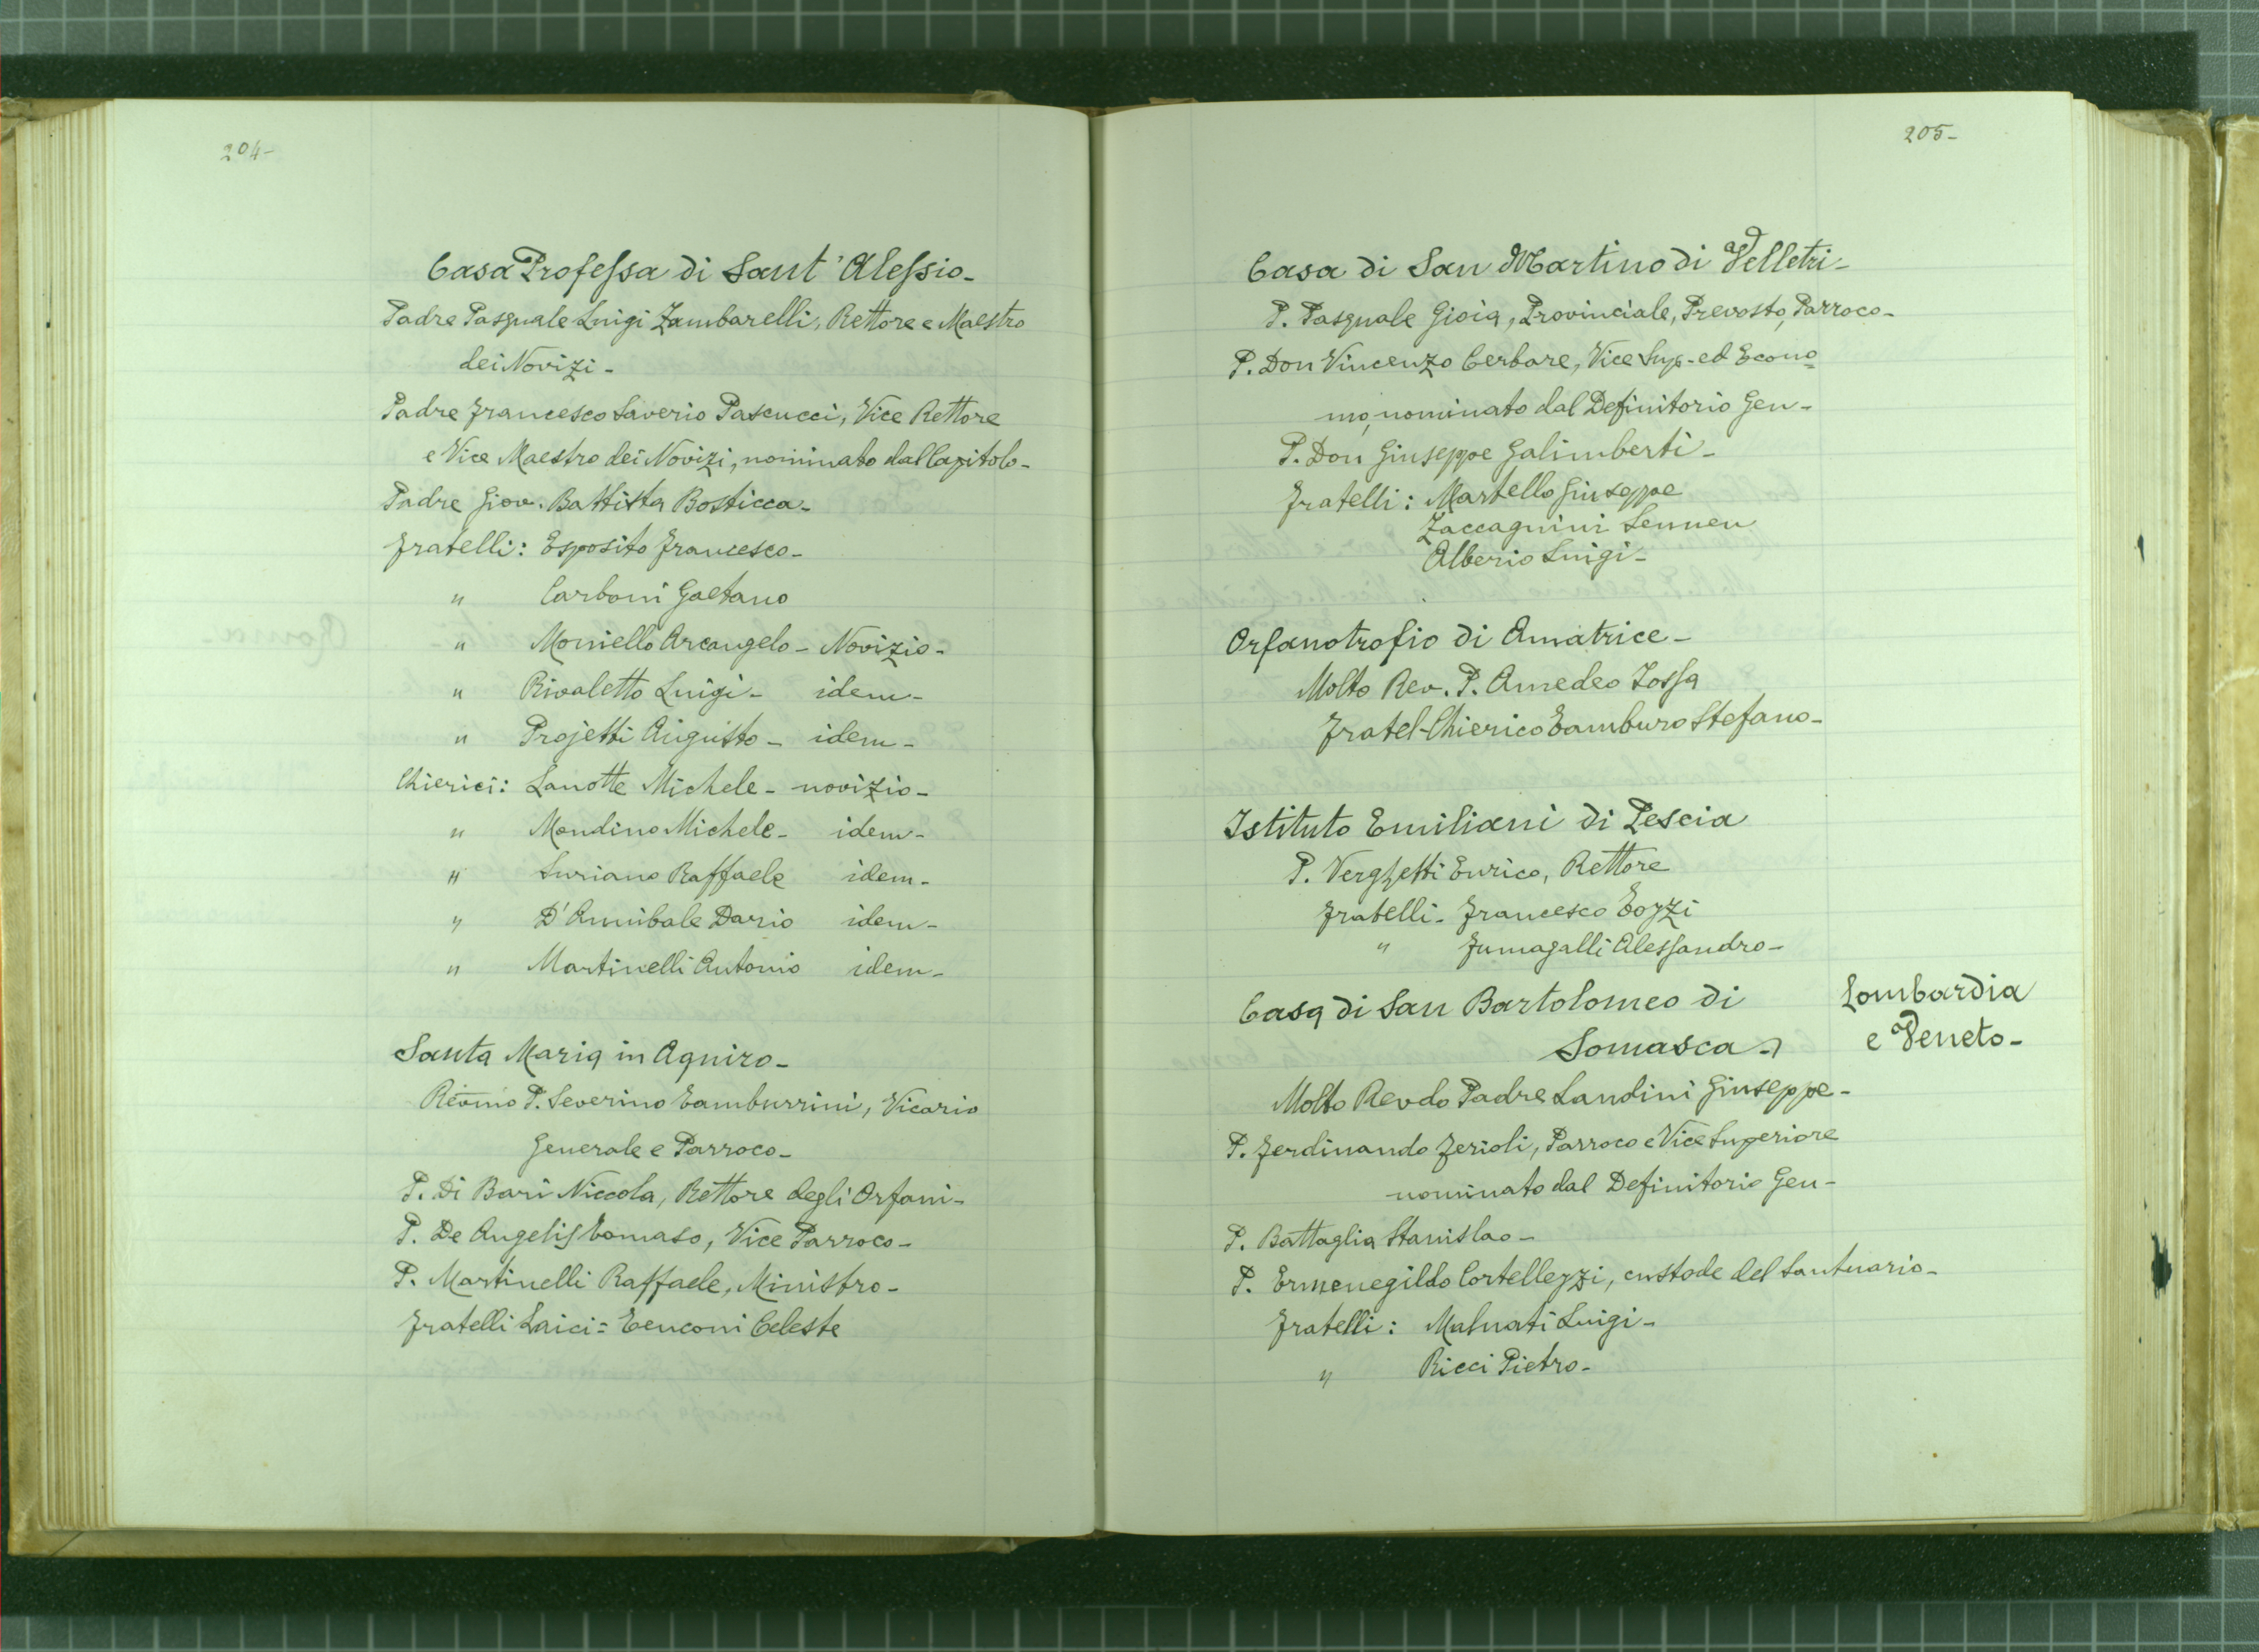 204-
Casa Professa di Sant' Alessio-
Padre Pasquale Luigi Zambarelli, Rettore e Maestro
dei Novizi-
Padre Francesco Saverio Pascucci, Vice Rettore
e Vice Maestro dei Novizi, nominato dal Capitolo-
Padre Giov. Battista Bosticca-
Fratelli: Esposito Francesco-
" Carboni Gaetano
" Moniello Arcangelo- Novizio-
" Rivaletto Luigi- idem-
" Projetti Augusto- idem-
Chierici: Lanotte Michele- novizio-
" Mondino Michele- idem-
" Suriano Raffaele idem-
" D'Annibale Dario idem-
" Martinelli Antonio idem-
Santa Maria in Aquiro-
Revmo P. Severino Tamburrini, Vicario
Generale e Parroco-
P. Di Bari Niccola, Rettore degli Orfani-
P. De Angelis Tomaso, Vice Parroco-
P. Martinelli Raffaele, Ministro-
Fratelli Laici= Tenconi Celeste
205-
Casa di San Martino di Velletri-
P. Pasquale Gioia, Provinciale, Prevosto, Parroco-
P. Don Vincenzo Cerbare, Vice Sup- ed Econo=
mo, nominato dal Definitorio Gen-
P. Don Giuseppe Galimberti-
Fratelli: Martello Giuseppe
Zaccagnini Sennen
Alberio Luigi-
Orfanotrofio di Amatrice-
Molto Rev. P. Amedeo Iossa
Fratel-Chierico Tamburo Stefano-
Istituto Emiliani di Pescia
P. Verghetti Enrico, Rettore
Fratelli- Francesco Tozzi
" Fumagalli Alessandro-
Casa di San Bartolomeo di
Somasca-
Lombardia
e Veneto-
Molto Revdo Padre Landini Giuseppe-
P. Ferdinando Ferioli, Parroco e Vice Superiore
nominato dal Definitorio Gen-
P. Battaglia Stanislao-
P. Ermenegildo Cortellezzi, custode del Santuario-
Fratelli: Malnati Luigi-
" Ricci Pietro-